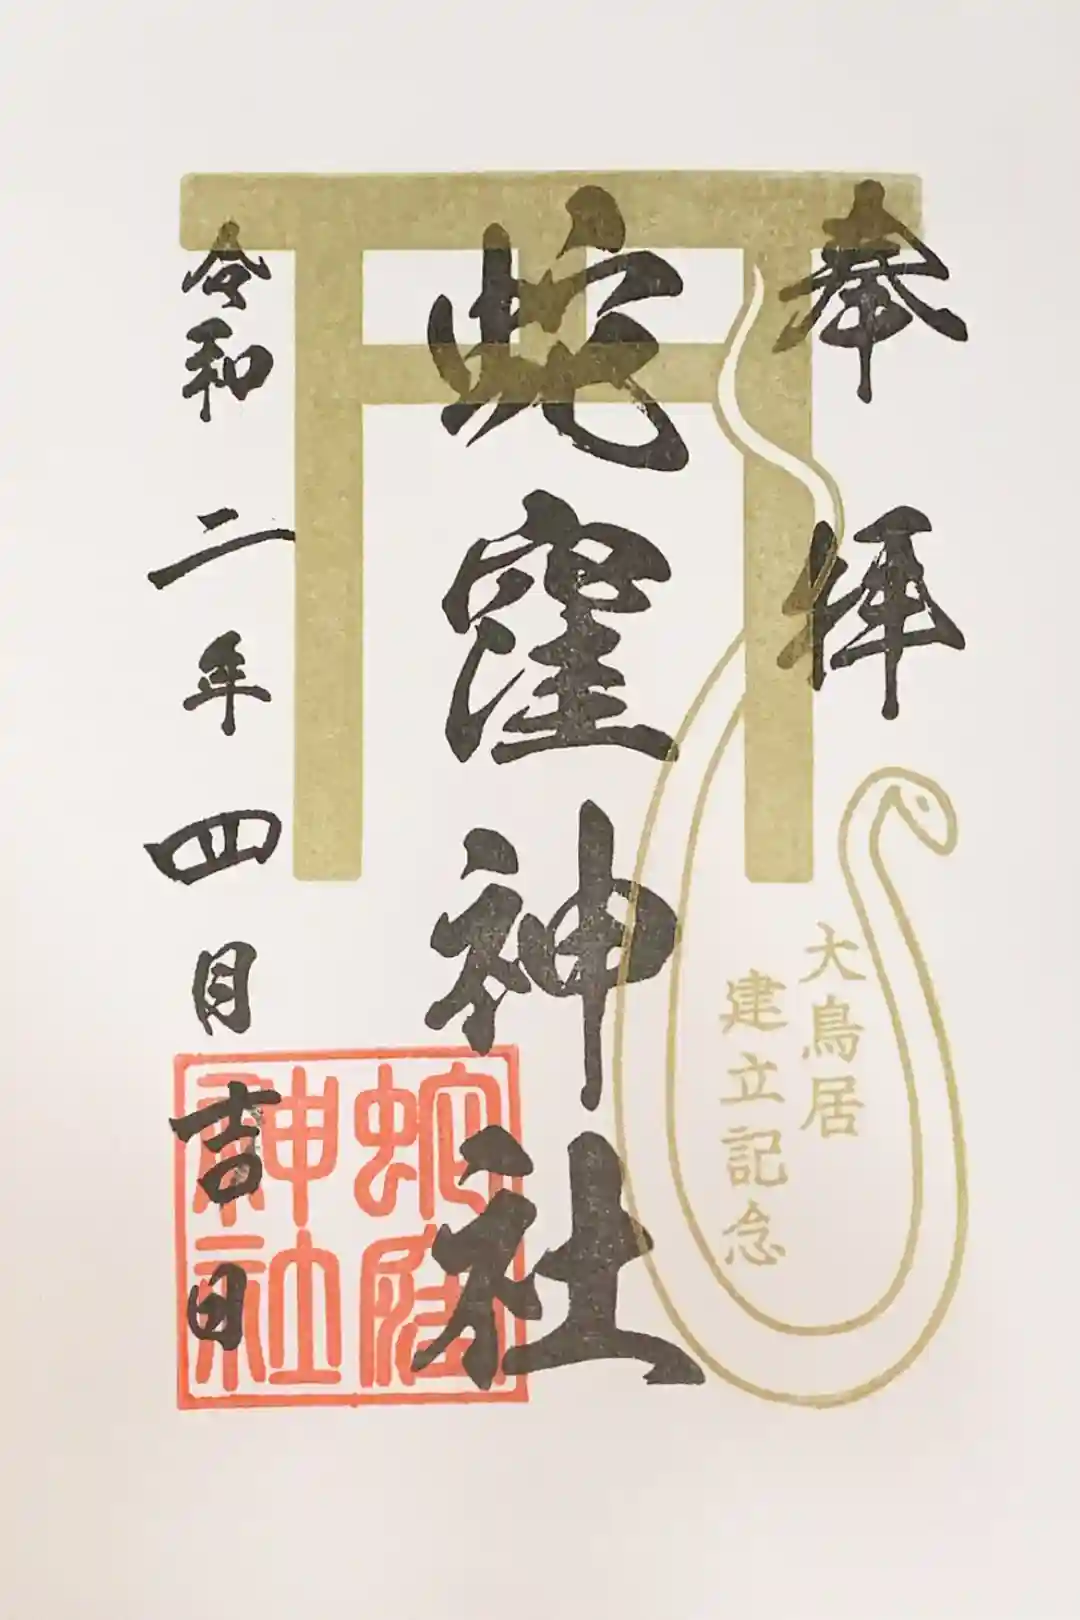 奉拝
蛇窪神社
令和二年四月吉日
大鳥居
建立記念
蛇窪
神社